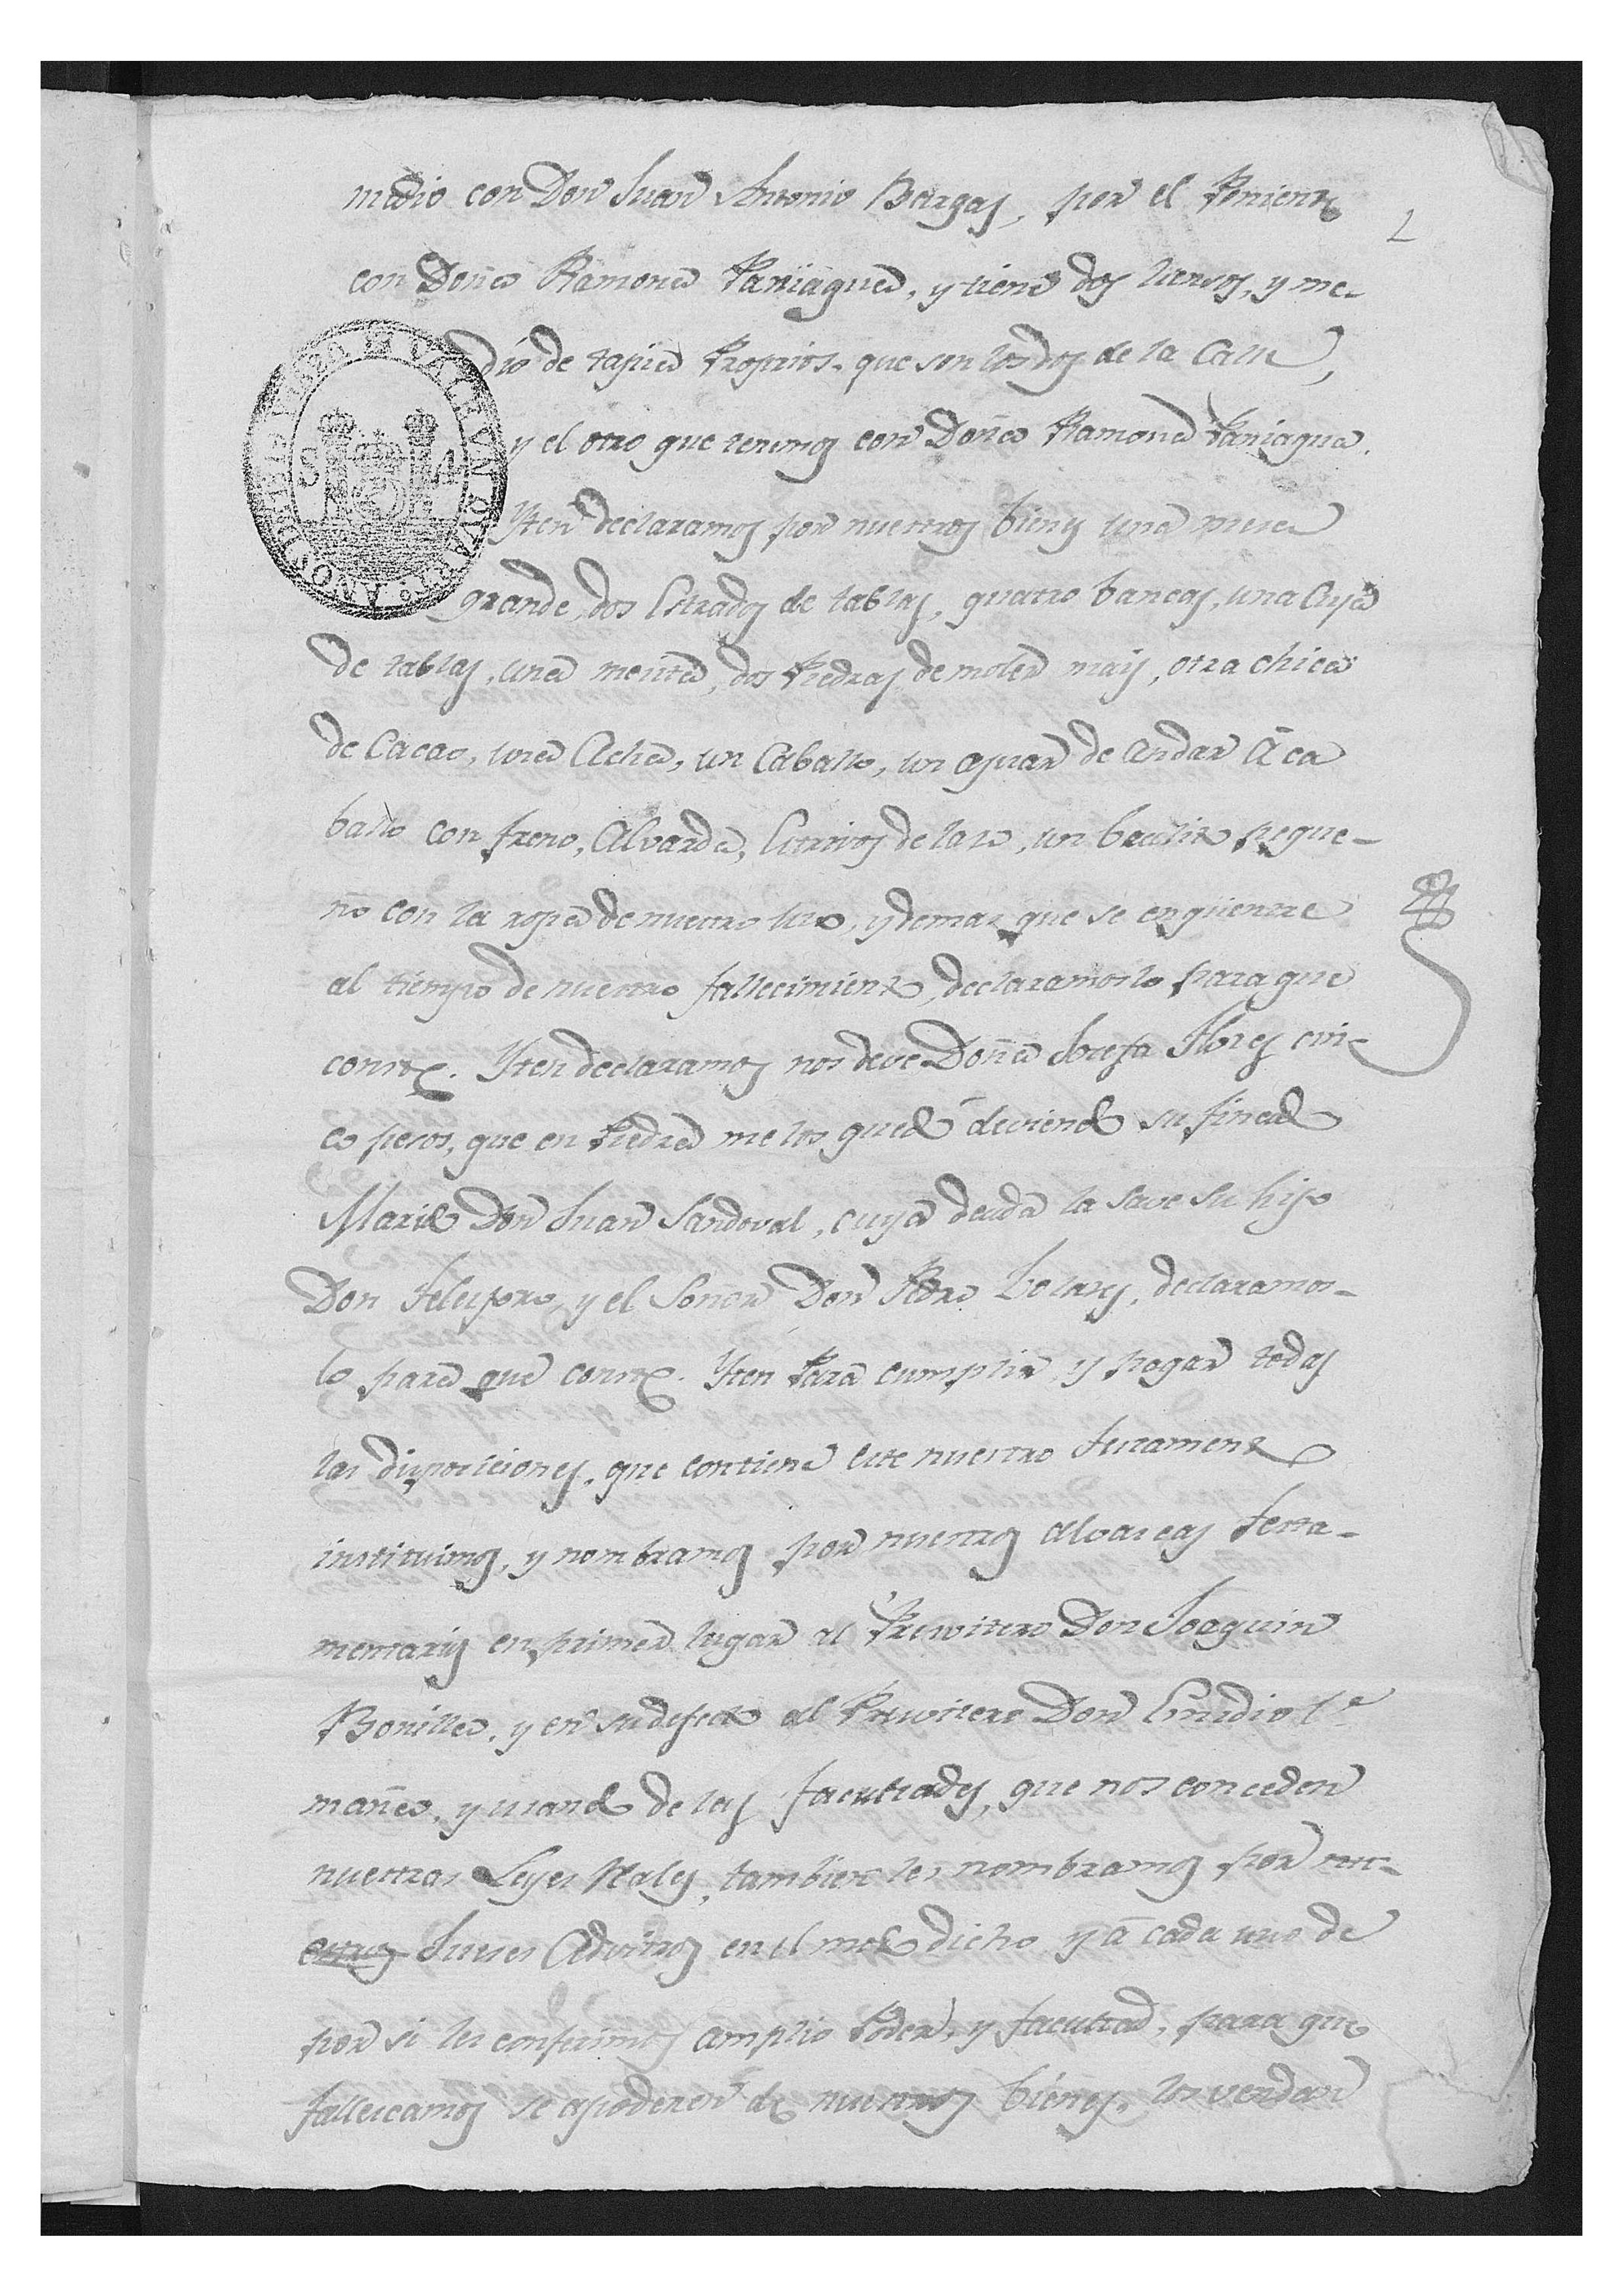 medio con Don Juan Antonio Bargas, por el Poniente
2
con Doña Ramona Paniagua, y tiene dos liensos, y me-
dio de tapia Proprios. que son los dos de la Calle,
y el otro que tenemos con Doña Ramona Paniagua.
Yten declaramos por nuestros bienes una mesa
grande, dos Estrados de tablas, quatro bancas, una Cuja
de tablas, una mesita, dos Piedras de moler mais, otra chica
de Cacao, una Acha, un Caballo, un apiar de andar á ca
ballo con freno, Alvarda, Estrivos de , un baulito peque-
ño con la ropa de nuestro uso, y demas que se enquentre
al tiempo de nuestro fallecimiento, declaramoslo para que
conste. Yten declaramos nos deve Doña Josefa Flores cin-
co pesos, que en Piedra me los quedó deviendo su finado
Marido Don Juan Sandoval, cuya deuda la save su hijo
Don Telesporo, y el Señor Don Pedro , declaramos-
lo para que conste. Yten Para cumplir, y pagar todas
las disposiciones, que contiene este nuestro Testamento
instituimos, y nombramos por nuestros alvaceas Testa-
mentarios en primer lugar al Presvitero Don Joaquin
Bonilla, y en su defecto al Presvitero Don Emidio
maña, y usando de las facultades, que nos conceden
nuestras Leyes Rales, tambien les nombramos por nue-
Jueses Advitros en el modo dicho y á cada uno de
por si les conferimos amplio Poder, y facultad, para que
fallescamos se apoderen de nuestros bienes, los vendan